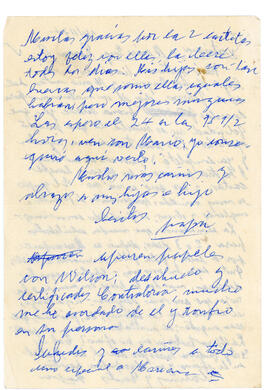 Muchas gracias por las 2 cartitas
estoy feliz con ellas, la leeré
todos los días. Mis hijos son tan
buenas que como ellas iguales
habran pero mejores ninguna
Las espero el 24 a las 9 1/2
horas; ven con Mario, yo conse-
guiré aquí verlo!
Muchos más cariños y
abrazos a mis hijas e hijo
Carlos
papá
apuren papeles
con Wilson; desahucio y
certificados Contraloría, mucho
me he acordado de el y confío
en su persona
Saludos y cariños a todo
uno especial a Mariana